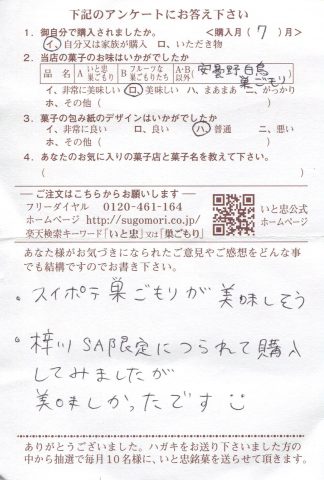 下記のアンケートにお答え下さい
1. 御自分で購入されましたか。 <購入月( 7 )月>
イ. 自分又は家族が購入 ロ. いただき物
2. 当店の菓子のお味はいかがでしたか
品名 A いと忠巣ごもり B フルーツな巣ごもりたち A・B以外 安曇野白鳥巣ごもり
イ. 非常に美味しい ロ. 美味しい ハ. まあまあ ニ. がっかり
ホ. その他( )
3. 菓子の包み紙のデザインはいかがでしたか
イ. 非常に良い ロ. 良い ハ. 普通 ニ. 悪い
ホ. その他( )
4. あなたのお気に入りの菓子店と菓子名を教えて下さい。
( )
ご注文はこちらからお願いします
フリーダイヤル 0120-461-164
ホームページ http://sugomori.co.jp/
楽天検索キーワード「いと忠」又は「巣ごもり」
いと忠公式
ホームページ
あなた様がお気づきになられたご意見やご感想をどんな事
でも結構ですのでお書き下さい。
・スイポテ巣ごもりが美味しそう
・梓川SA限定につられて購入
してみましたが
美味しかったです
ありがとうございました。ハガキをお送り下さいました方の
中から抽選で毎月10名様に、いと忠銘菓を送らせて頂きます。